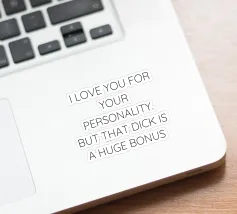 I LOVE YOU FOR
YOUR
PERSONALITY.
BUT THAT DICK IS
A HUGE BONUS